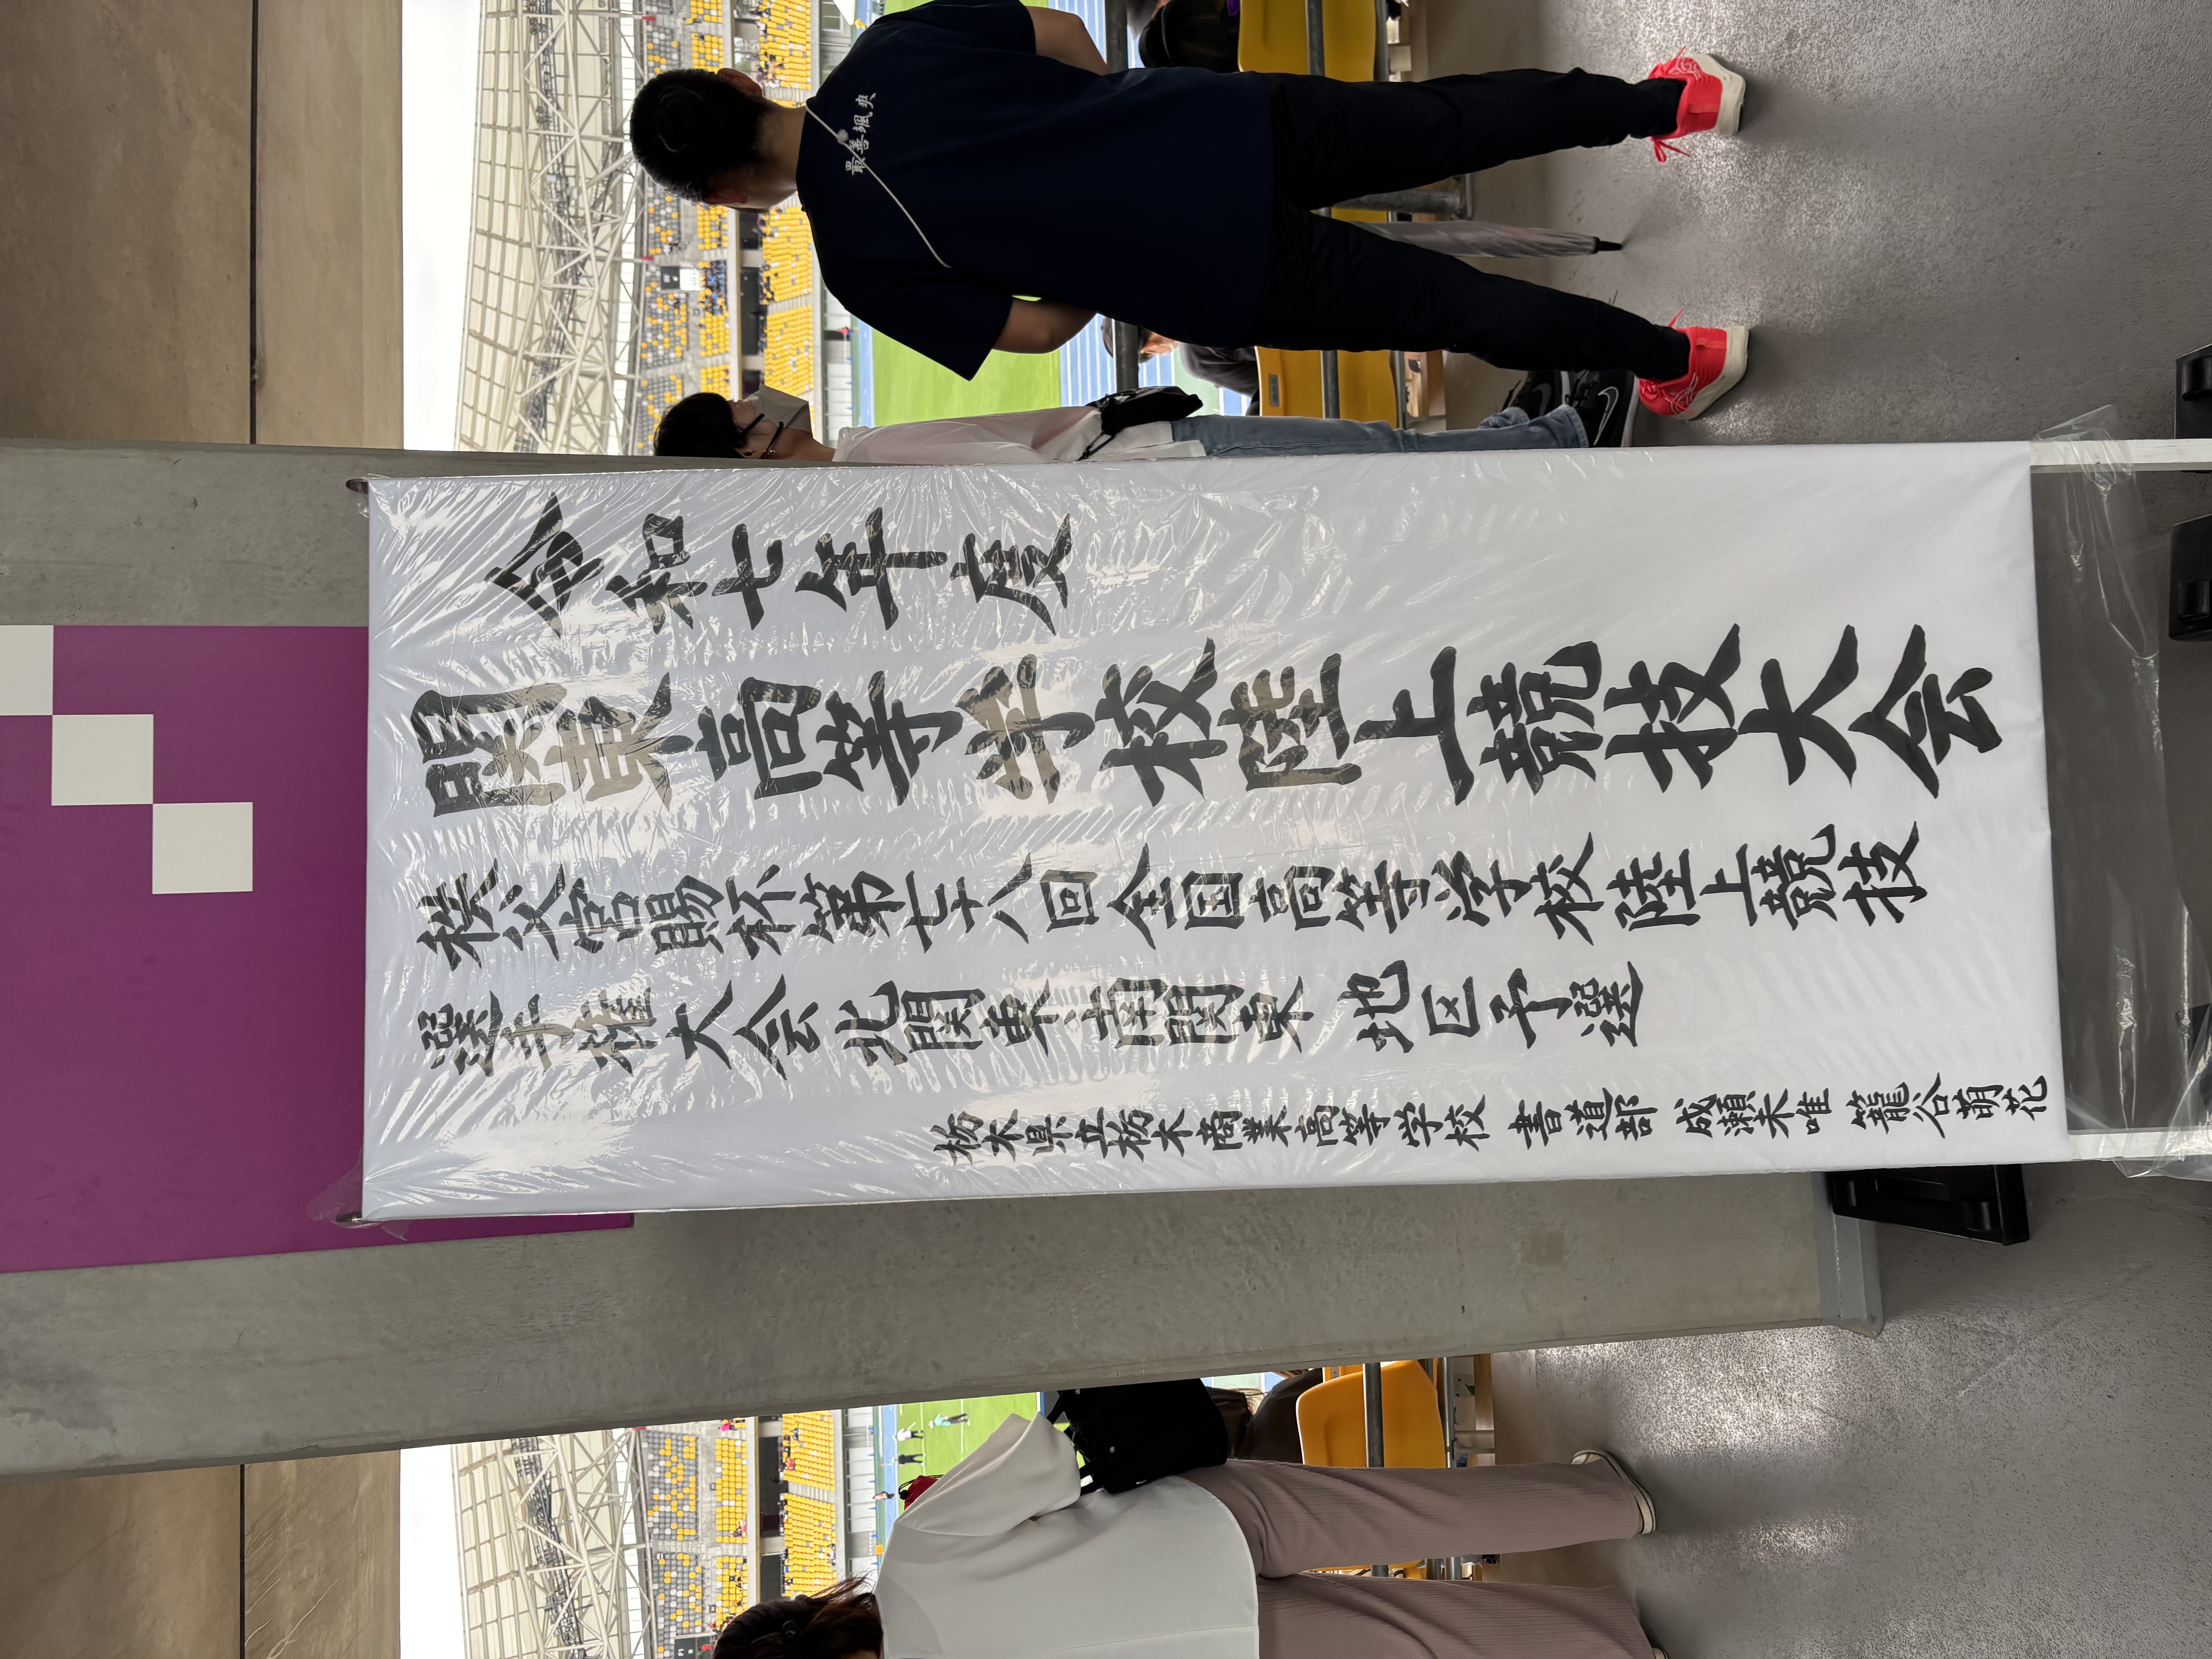 令和七年度
関東高等学校陸上競技大会
秩父宮賜杯第七十八回全国高等学校陸上競技
選手権大会北関東南関東地区予選
栃木県立栃木商業高等学校 書道部 成瀬未唯 籠谷萌花
最善颯爽